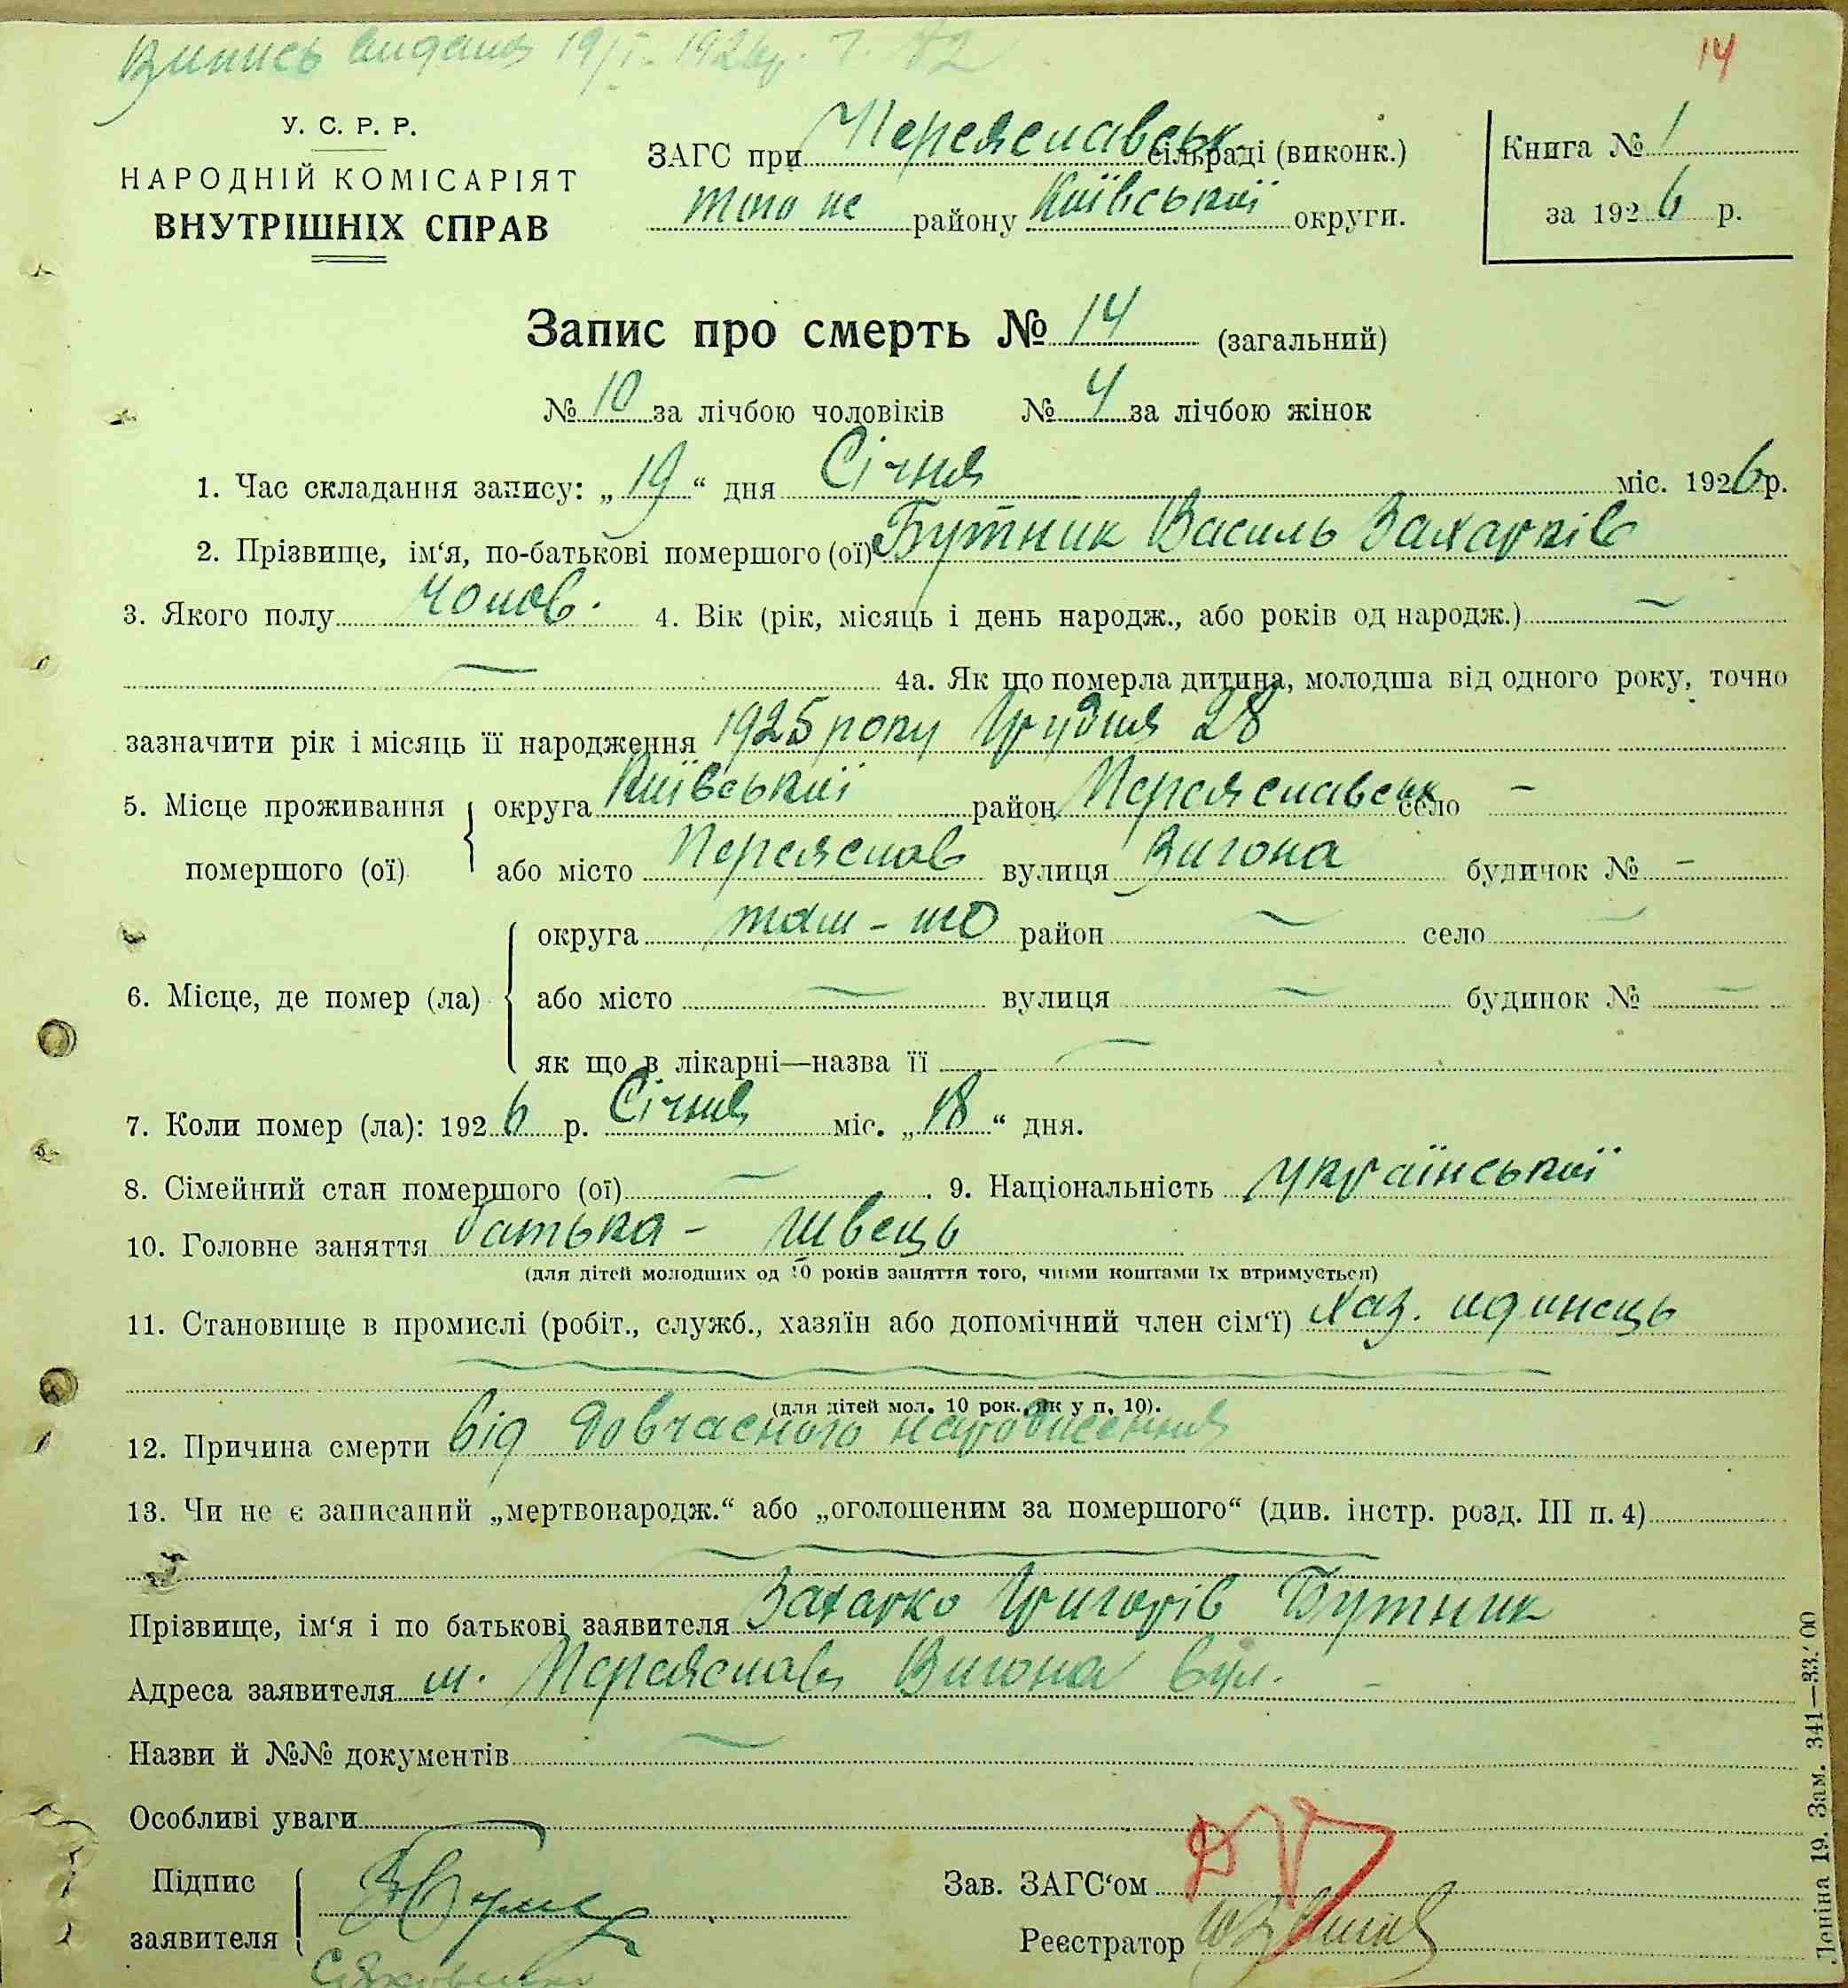 Випись видана 19/I-1926р.
14
У. С. Р. Р.
НАРОДНІЙ КОМІСАРІЯТ
ВНУТРІШНІХ СПРАВ
ЗАГС при Переяславськ сільраді (виконк.)
того же району Київської округи.
Книга № 1
за 1926 р.
Запис про смерть № 14 (загальний)
№ 10 за лічбою чоловіків № 4 за лічбою жінок
1. Час складання запису: „19“ дня Січня міс. 1926 р.
2. Прізвище, ім‘я, по-батькові помершого (ої) Бутник Василь Захарків
3. Якого полу чолов. 4. Вік (рік, місяць і день народж., або років од народж.) —
— 4а. Як що померла дитина, молодша від одного року, точно
зазначити рік і місяць її народження 1925 року Грудня 28
5. Місце проживання помершого (ої) округа Київської район Переяславськ село -
або місто Переяслав вулиця Вигона будинок № -
6. Місце, де помер (ла) округа там-що район — село —
або місто — вулиця — будинок № —
як що в лікарні—назва її —
7. Коли помер (ла): 1926 р. Січня міс. „18“ дня.
8. Сімейний стан помершого (ої) — 9. Національність української
10. Головне заняття батька - швець
(для дітей молодших од 10 років заняття того, чиїми коштами їх втримується)
11. Становище в промислі (робіт., служб., хазяїн або допомічний член сім‘ї) хаз. одинець
(для дітей мол. 10 рок., як у п. 10).
12. Причина смерти від довчасного народження
13. Чи не є записаний „мертвонародж.“ або „оголошеним за помершого“ (див. інстр. розд. III п. 4)
Прізвище, ім‘я і по батькові заявителя Захарко Григорів Бутник
Адреса заявителя м. Переяслав Вигона вул. -
Назви й №№ документів —
Особливі уваги
Підпис заявителя
Зав. ЗАГС‘ом
Реєстратор
Леніна 19. Зам. 341—33.